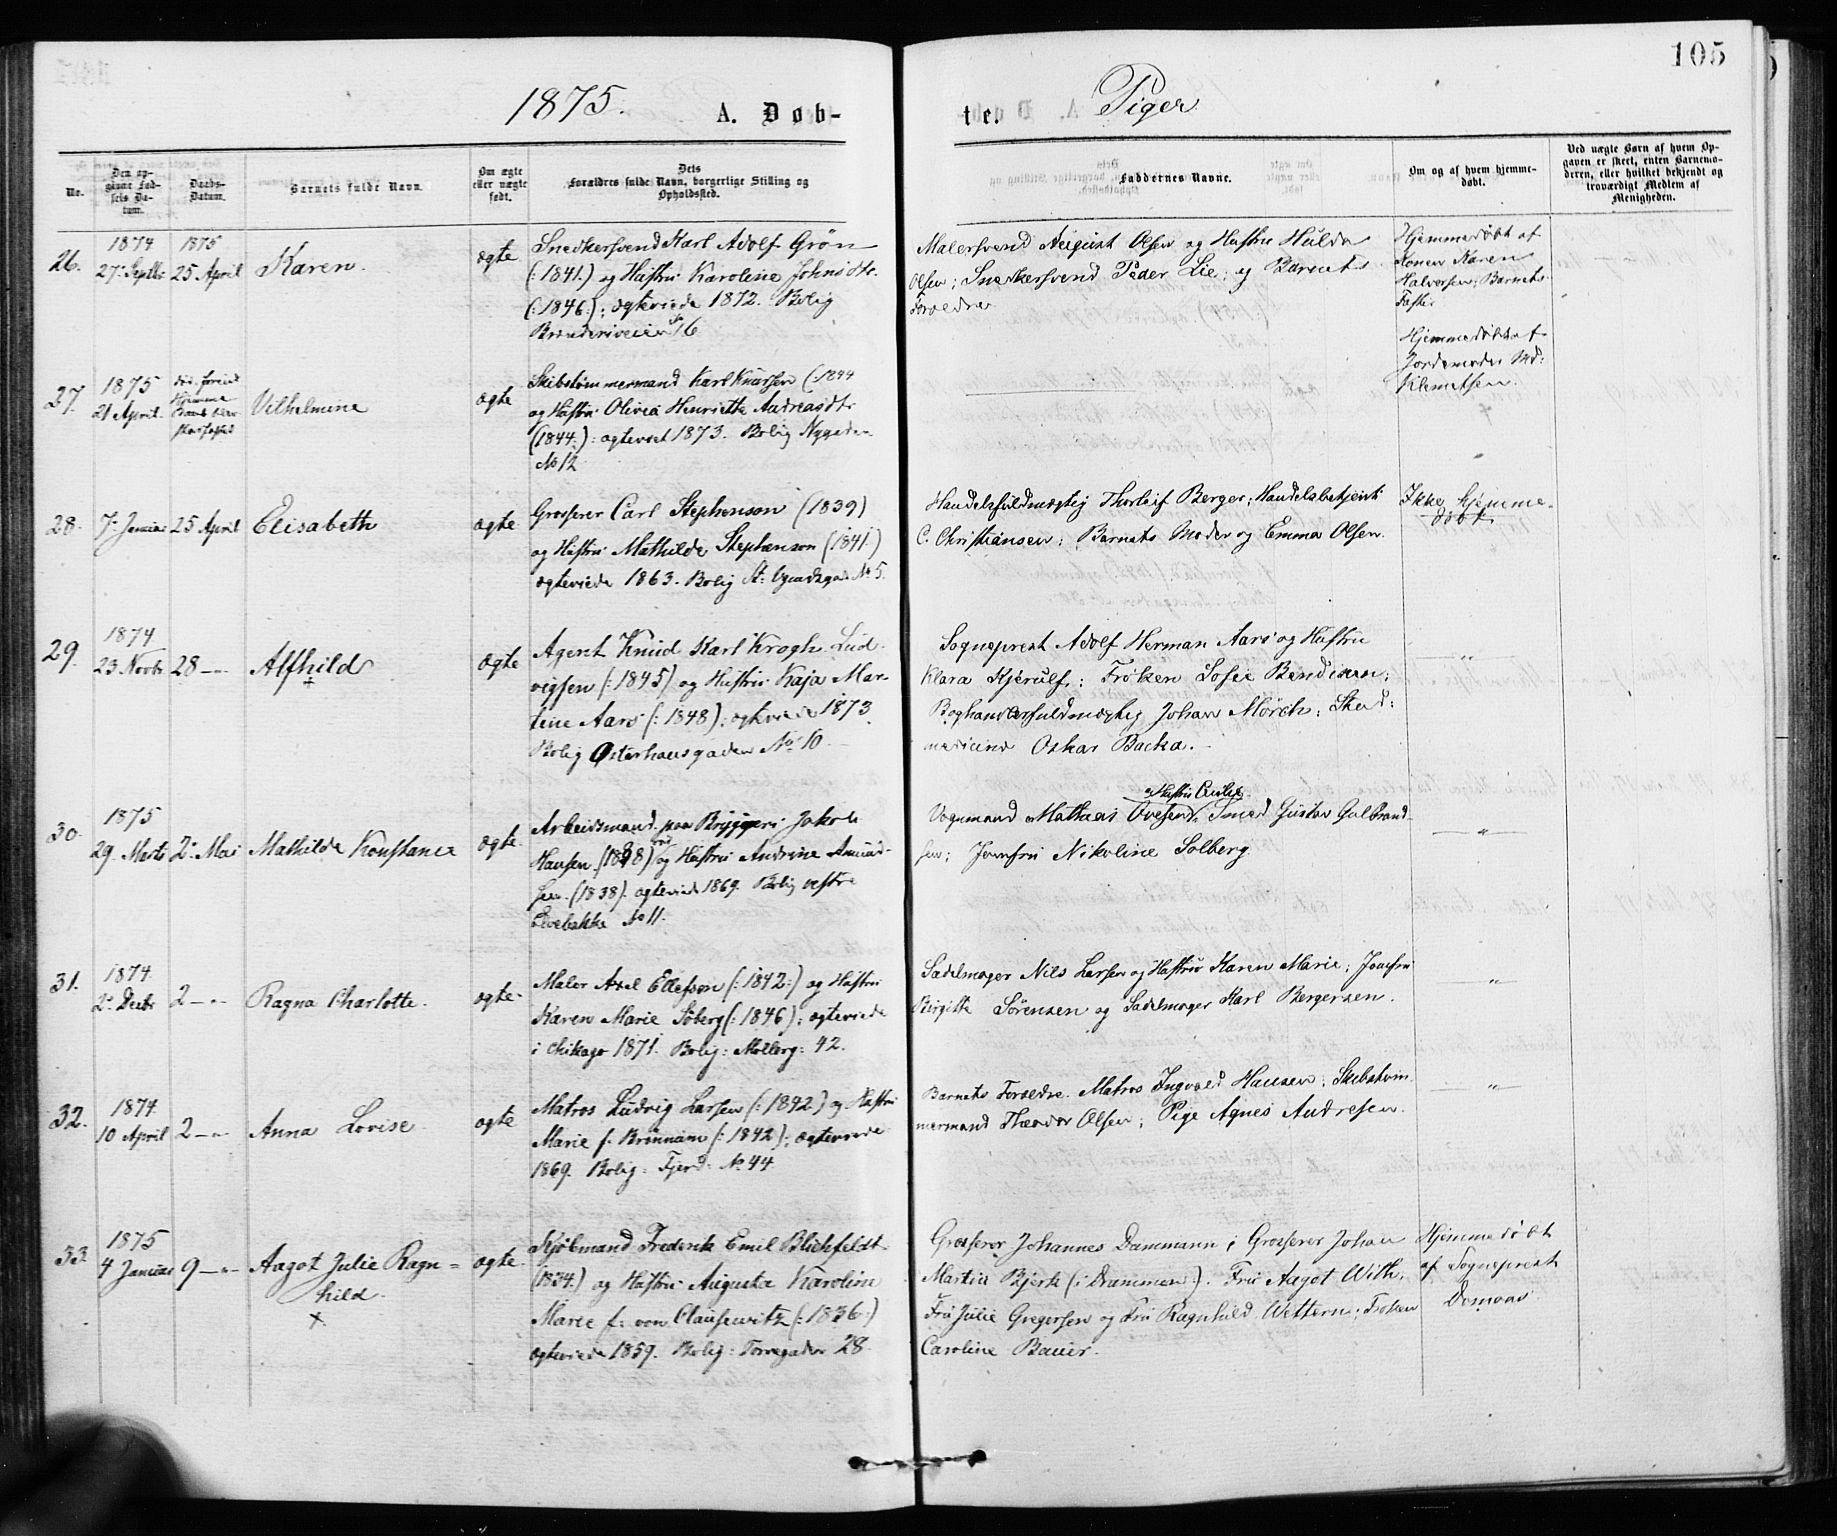 105
1875. A. Døb-
te. Piger
No.
Den op-
givne Fød-
sels Da-
tum.
Daabs-
Datum.
Barnets fulde Navn.
Om ægte
eller uægte
født.
Dets
Forældres fulde Navn, borgerlige Stilling og
Opholdssted.
Faddernes Navne.
Om og af hvem hjemme-
døbt.
Ved uægte Børn af hvem Op-
gaven er skeet, enten Barnemo-
deren, eller hvilket bekjendt og
troværdigt Medlem af
Menigheden.
26.
1874
27. Septbr
1875
25 April
Karen.
ægte
Snedkersvend Karl Adolf Grøn
(: 1841.) og Hustru Karoline Johnsdtr.
(: 1846:); ægteviede 1872. Bolig
16
Malersvend August Olsen og Hustru Hulda
Olsen; Snedkersvend Peder Lie; og Barnets
Forældre
Hjemmedøbt af
Konen Karen
Halvorsen, Barnets
Faster.
27.
1875
21 April
Hjemme
Vilhelmine
ægte
Skibstømmermand Karl Knudsen (: 1844
og Hustru Olivia Henriette Andreasdtr
(1844:): ægteviet 1873. Bolig Nygaden
No 12
Hjemmedøbt af
Jordemoder Md:
Klemetsen.
28.
7. Januar
25 April
Elisabeth
ægte
Grosserer Carl Stephenson (1839)
og Hustru Mathilde Stephenson (1841.)
ægteviede 1863. Bolig St: No 5.
Handelsfuldmægtig Thorleif Berger; Handelsbetjent
C. Christiansen; Barnets Moder og Emma Olsen.
Ikke hjemme-
døbt
29.
1874
23 Novbr
28 —"—
Alfhild
+
ægte
Agent Knud Karl Krogh Lud-
vigsen (: 1845) og Hustru Kaja Mar-
tine Aars (: 1848); ægteviede 1873.
Bolig Østerhausgaden No 10.
Sogneprest Adolf Herman Aars og Hustru
Klara Kjerulf; Frøken Sofie Bendixen;
Boghandlerfuldmægtig Johan Mørch; Stud:
medicine Oskar Backa.
—"—
30.
1875
29. Marts
2. Mai
Mathilde Konstance
ægte.
Arbeidsmand paa Bryggeri Jakob
Hansen (1838) og Hustru Andrine Amund-
sen (1838). ægteviede 1869. Bolig vestre
Elvebakke No 11.
Hustru Cecilie
Vognmand Mathias Ovesen; Smed Gustav Gulbrand-
sen; Jomfru Nikoline Solberg
—"—
31.
1874
2. Decbr
2 —"—
Ragna Charlotte.
ægte.
Maler Axel Ellefsen (: 1842:) og Hustru
Karen Marie Søberg (: 1846); ægteviede
i Chikago 1871. Bolig: Møllerg: 42.
Sadelmager Nils Larsen og Hustru Karen Marie; Jomfru
Birgitte Sørensen og Sadelmager Karl Bergersen.
—"—
32.
1874
10 April
2 —"—
Anna Lovise
ægte
Matros Ludvig Larsen (: 1842) og Hustru
Marie f. (: 1842); ægteviede
1869. Bolig: Fjerd: No 44
Barnets Forældre. Matros Ingvald Hansen; Skibstøm-
mermand Theodor Olsen; Pige Agnes Andresen.
—"—
33
1875
4 Januar
9 —"—
Aagot Julie Ragn=
hild.
+
ægte.
Kjøbmand Frederik Emil Blichfeldt
(1834.) og Hustru Augusta Karoline
Marie f: von Clausewitz (: 1836:)
ægteviede 1859. Bolig: Torvegaden 28.
Grosserer Johannes Dammann; Grosserer Johan
Martin Bjerk (i Drammen). Fru Aagot With;
Fru Julie Gregersen og Fru Ragnhild Wettern; Frøken
Caroline Bauer.
Hjemmedøbt
af Sogneprest